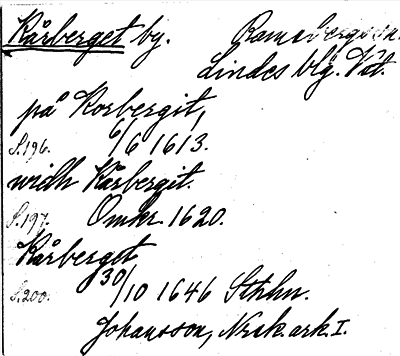 Kårberget by. Ramsbergs sn.
Lindes blg. Vstl.
på Korbergit,
S.196. 6/6 1613.
widh Kårbergit.
S.197. Omkr. 1620.
Kårberget
S.200. 30/10 1646 Sthhn.
Johansson, Noraskog. ark. I.